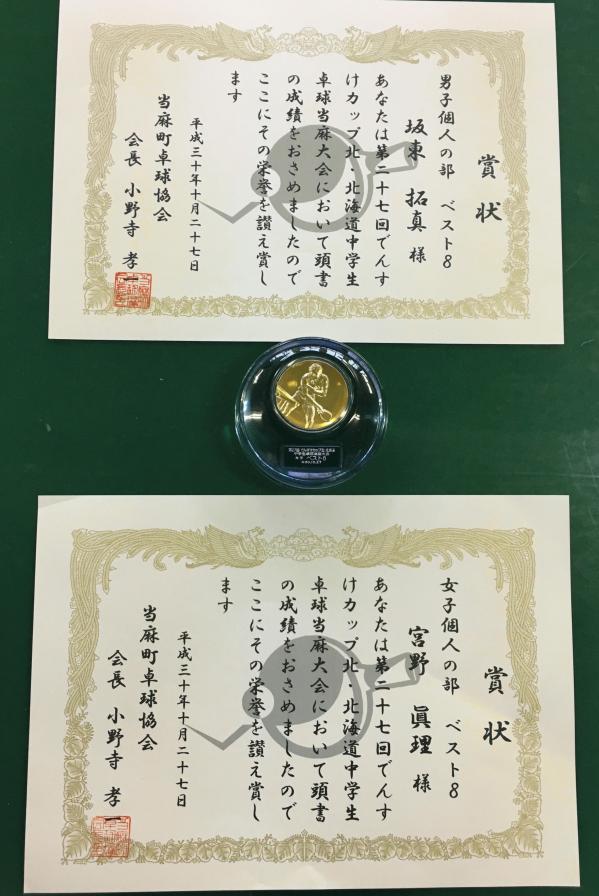 賞状
男子個人の部 ベスト8
坂東 拓真 様
あなたは第二十七回でんす
けカップ北・北海道中学生
卓球当麻大会において頭書
の成績をおさめましたので
ここにその栄誉を讃え賞し
ます
平成三十年十月二十七日
当麻町卓球協会
会長 小野寺 孝一
ベスト8
賞状
女子個人の部 ベスト8
宮野 眞理 様
あなたは第二十七回でんす
けカップ北・北海道中学生
卓球当麻大会において頭書
の成績をおさめましたので
ここにその栄誉を讃え賞し
ます
平成三十年十月二十七日
当麻町卓球協会
会長 小野寺 孝一